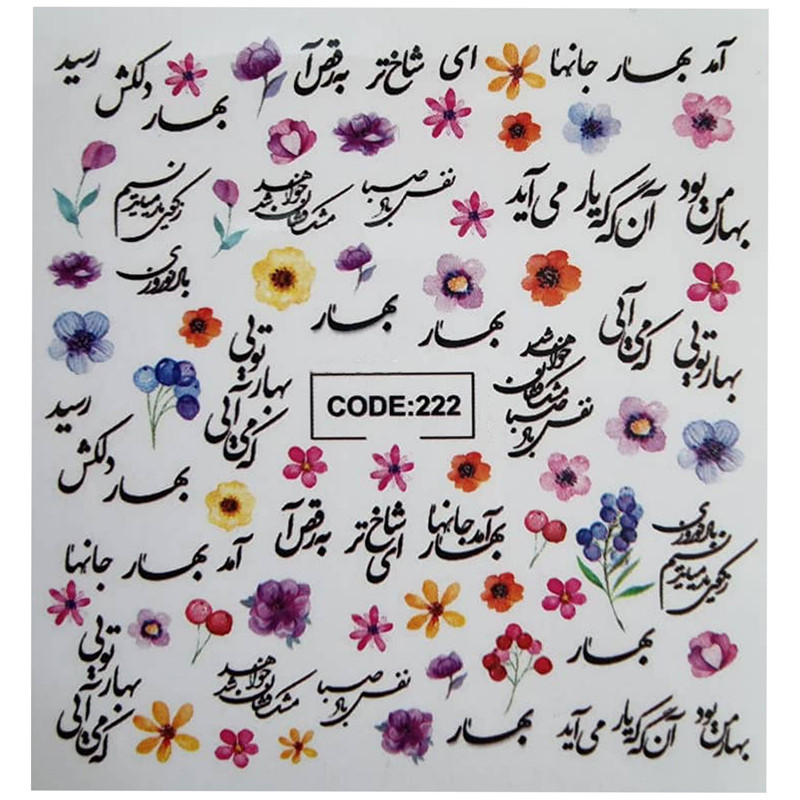 آمد بهار جانها
ای شاخ تر
به رقص آ
بهار دلکش
رسید
بهار من بود
آن گه که یار
می آید
نفس باد صبا
مشک فشان
خواهد شد
نسیم
باد نوروزی
بهار تویی
که می آیی
بهار
بهار
بهار تویی
که می آیی
CODE:222
نفس باد صبا
مشک فشان
خواهد شد
رسید
بهار دلکش
بهار
آمد جانها
ای شاخ تر
به رقص آ
آمد بهار جانها
باد نوروزی
نسیم
بهار
بهار تویی
که می آیی
نفس باد صبا
مشک فشان
خواهد شد
بهار من بود
آن گه که یار
می آید
بهار